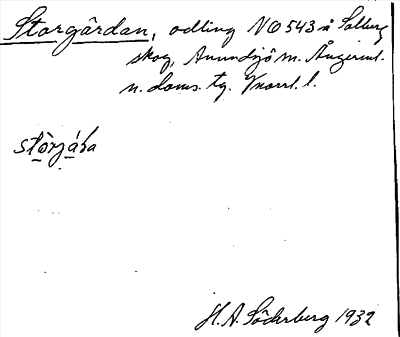 Storgärdan, odling NO 543 å Solberg
skog, Anundsjö sn. Ångerml.
n. doms. tg. Vnorrl. l.
stòrjáɽa
H. A. Söderberg 1932